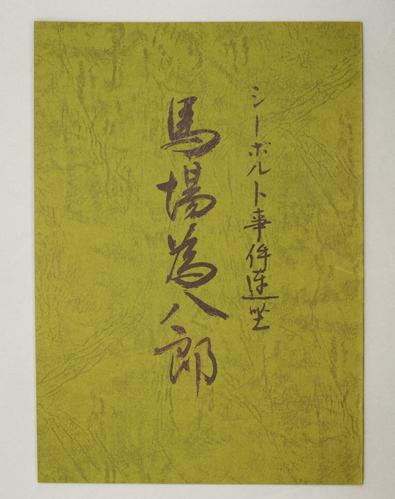 シーボルト事件連坐
馬場為八郎